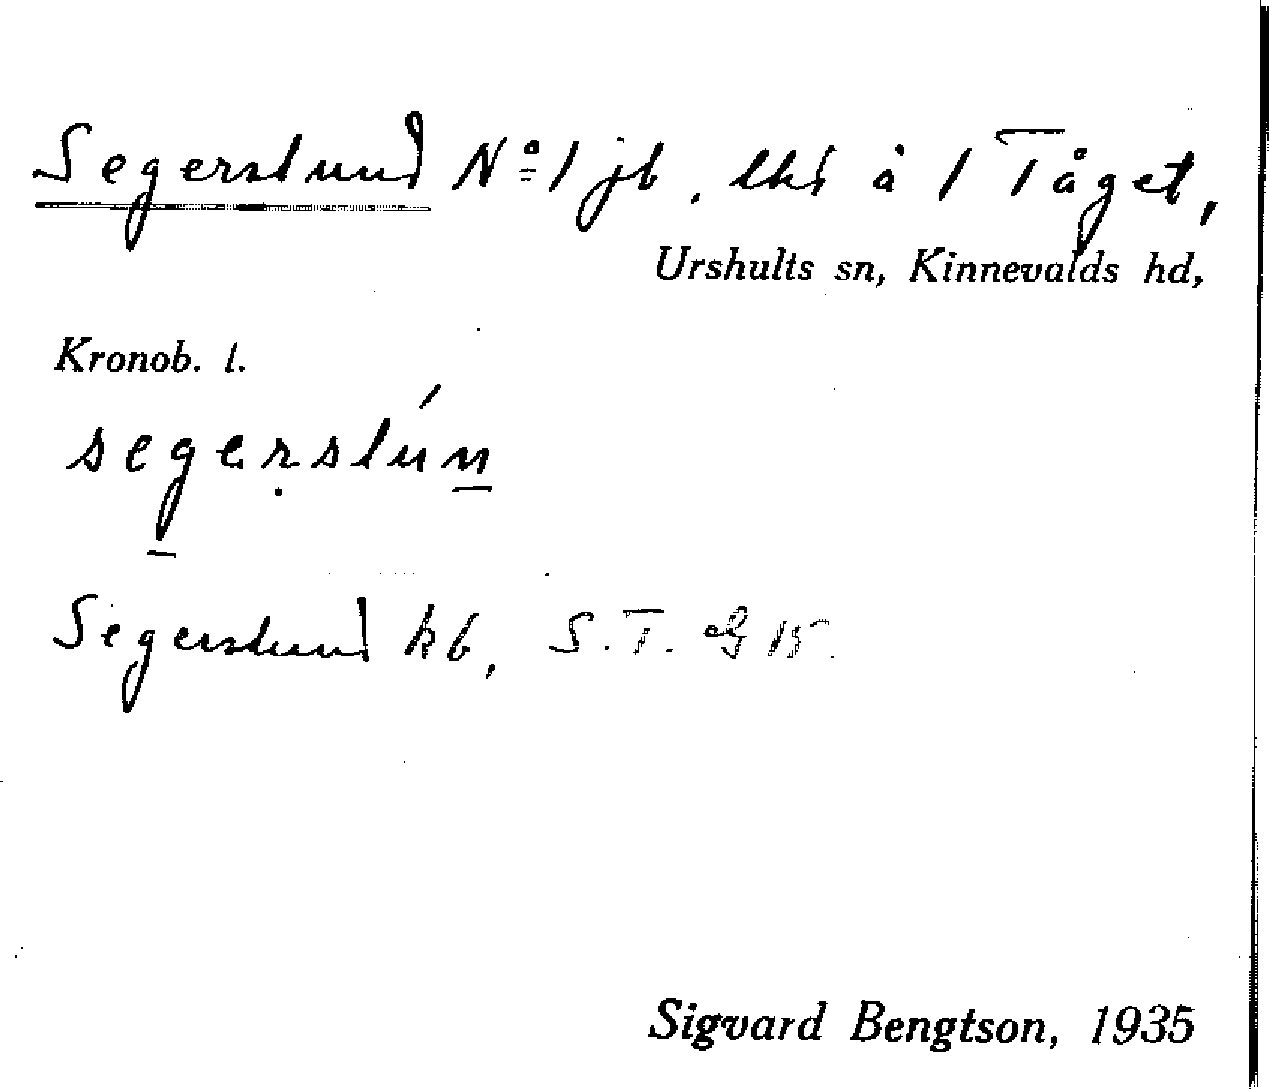 Segerslund Nº 1 jb, lht å 1 Tåget,
Urshults sn, Kinnevalds hd,
Kronob. l.
segerslún
Segerslund kb, S.T. G 15.
Sigvard Bengtson, 1935